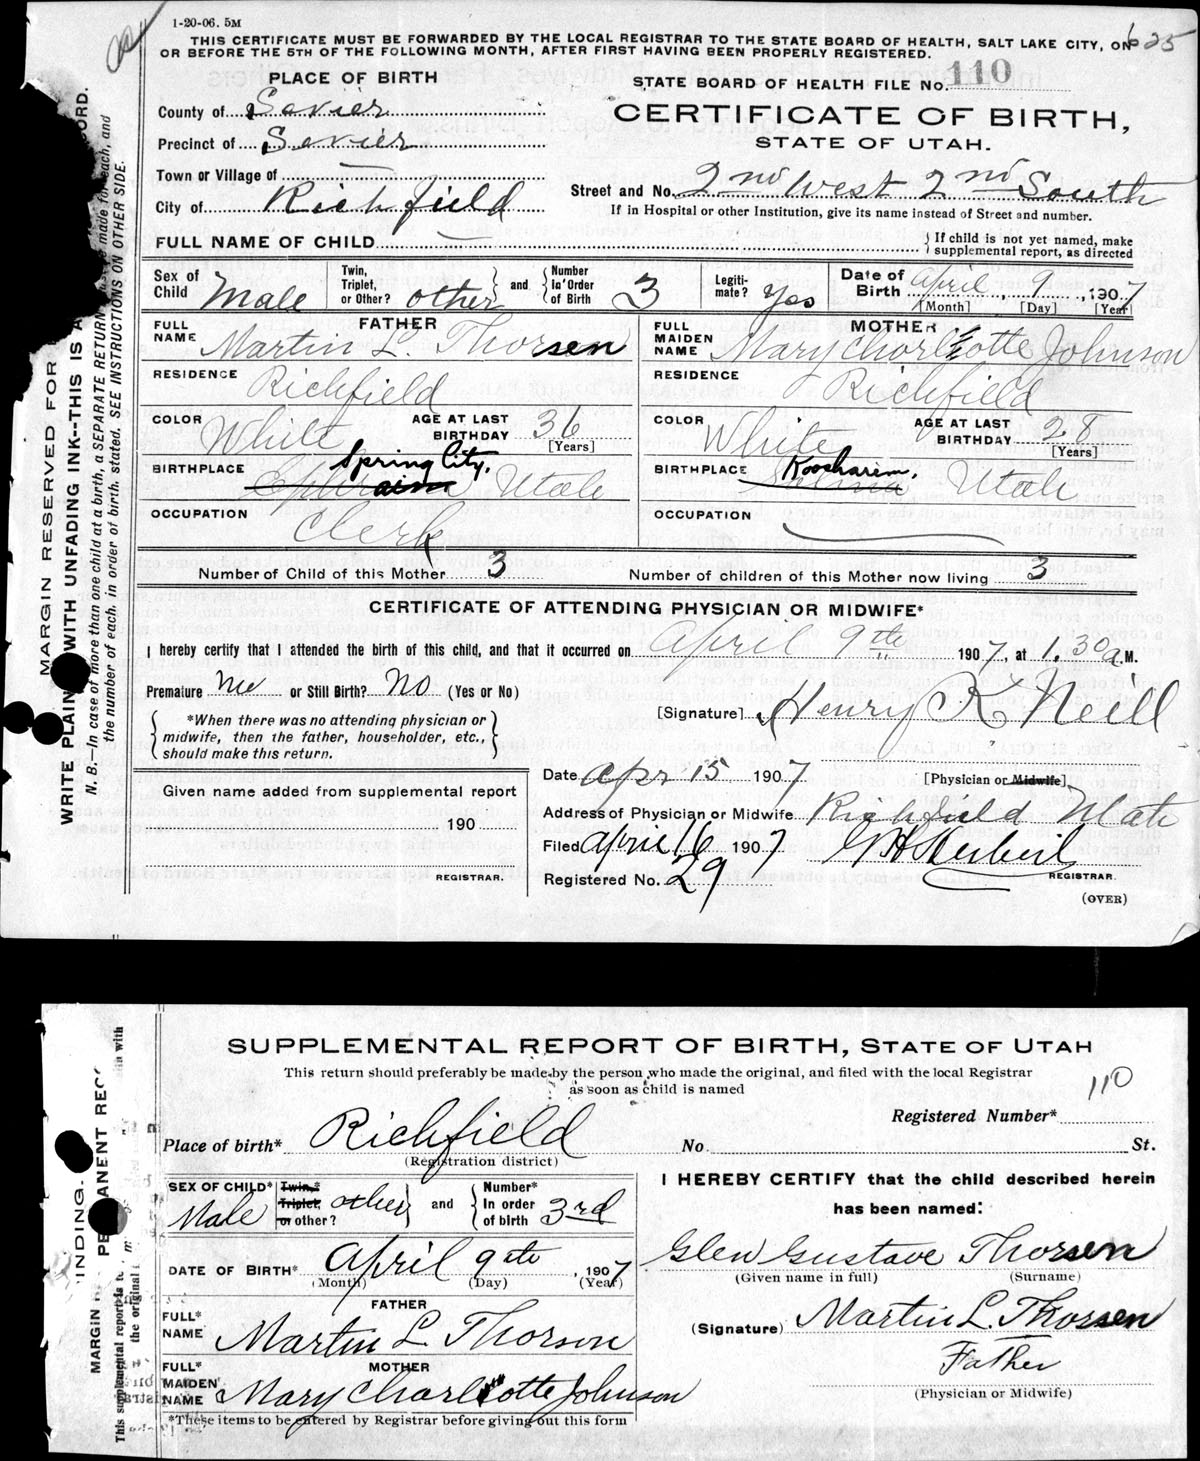 1-20-06. 5M
THIS CERTIFICATE MUST BE FORWARDED BY THE LOCAL REGISTRAR TO THE STATE BOARD OF HEALTH, SALT LAKE CITY, ON
OR BEFORE THE 5TH OF THE FOLLOWING MONTH, AFTER FIRST HAVING BEEN PROPERLY REGISTERED.
625
PLACE OF BIRTH
STATE BOARD OF HEALTH FILE No. 110
County of Sevier
CERTIFICATE OF BIRTH,
Precinct of Sevier
STATE OF UTAH.
Town or Village of —
City of Richfield
Street and No. 2nd West 2nd South
If in Hospital or other Institution, give its name instead of Street and number.
FULL NAME OF CHILD — If child is not yet named, make
supplemental report, as directed
Sex of Child Male
Twin, Triplet, or Other? other and Number In Order of Birth 3
Legitimate? Yes
Date of Birth April 9, 1907
[Month] [Day] [Year]
FATHER
FULL NAME Martin L. Thorsen
RESIDENCE Richfield
COLOR White AGE AT LAST BIRTHDAY 36 [Years]
BIRTHPLACE Ephraim Spring City, Utah
OCCUPATION Clerk
MOTHER
FULL MAIDEN NAME Mary Charlotte Johnson
RESIDENCE Richfield
COLOR White AGE AT LAST BIRTHDAY 28 [Years]
BIRTHPLACE Koosharem, Utah
OCCUPATION
Number of Child of this Mother 3 Number of children of this Mother now living 3
CERTIFICATE OF ATTENDING PHYSICIAN OR MIDWIFE*
I hereby certify that I attended the birth of this child, and that it occurred on April 9th 1907, at 1.30 a.M.
Premature no or Still Birth? No (Yes or No)
*When there was no attending physician or
midwife, then the father, householder, etc.,
should make this return.
[Signature] Henry K Neill
Date Apr 15 1907 [Physician or Midwife]
Given name added from supplemental report
190
REGISTRAR.
Address of Physician or Midwife Richfield Utah
Filed April 16 1907 G H Herbert
Registered No. 29 REGISTRAR.
(OVER)
MARGIN RESERVED FOR
WRITE PLAIN WITH UNFADING INK--THIS IS A ORD.
N. B.—In case of more than one child at a birth, a SEPARATE RETURN must be made for each, and
the number of each, in order of birth, stated. SEE INSTRUCTIONS ON OTHER SIDE.
SUPPLEMENTAL REPORT OF BIRTH, STATE OF UTAH
This return should preferably be made by the person who made the original, and filed with the local Registrar
as soon as child is named
110
Registered Number*
Place of birth* Richfield No. St.
(Registration district)
SEX OF CHILD* Male
Twin,* Triplet, or other? other and Number* In order of birth 3rd
DATE OF BIRTH* April 9th, 1907
(Month) (Day) (Year)
FATHER
FULL* NAME Martin L Thorson
MOTHER
FULL* MAIDEN NAME Mary Charlotte Johnson
*These items to be entered by Registrar before giving out this form
I HEREBY CERTIFY that the child described herein
has been named:
Glen Gustave Thorsen
(Given name in full) (Surname)
(Signature) Martin L. Thorsen
Father
(Physician or Midwife)